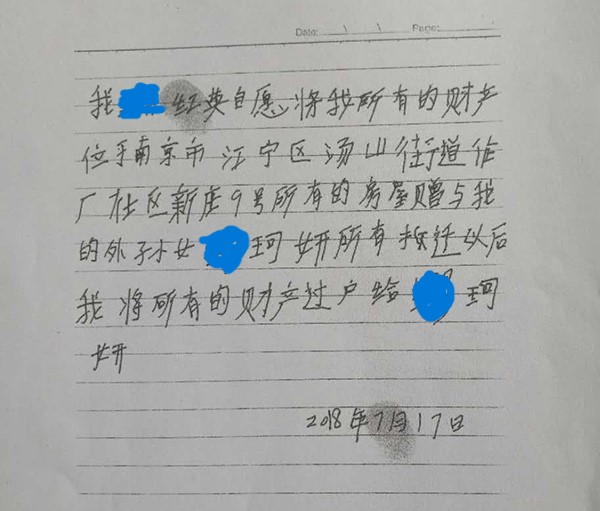 Date: / / Page:
我 红英自愿将我所有的财产
位于南京市江宁区汤山街道作
厂社区新庄9号所有的房屋赠与我
的外孙女 珂妍所有拆迁以后
我将所有的财产过户给 珂
妍
2018年7月17日